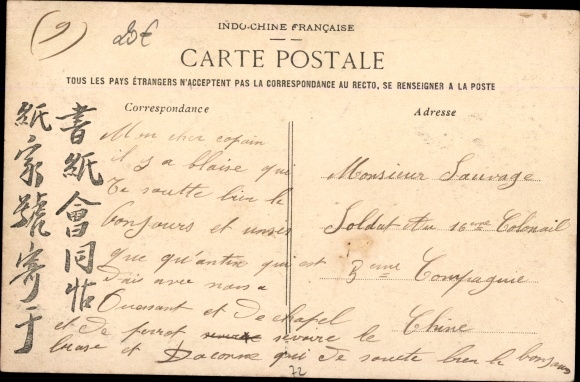 (9)
20€
INDO-CHINE FRANÇAISE
CARTE POSTALE
TOUS LES PAYS ÉTRANGERS N'ACCEPTENT PAS LA CORRESPONDANCE AU RECTO, SE RENSEIGNER A LA POSTE
Correspondance
Mon cher copain
il y a blaise qui
te souette bien le
bonjours et
que qui est
avec nous a
Ouessant et de chapel
et de perrot revoire le
biase et qui de souete bien le bonjours
Adresse
Monsieur Sauvage
Soldat Au 16eme Colonial
3eme Compagnie
Chine
書紙會同怗
紙家號寄于
72